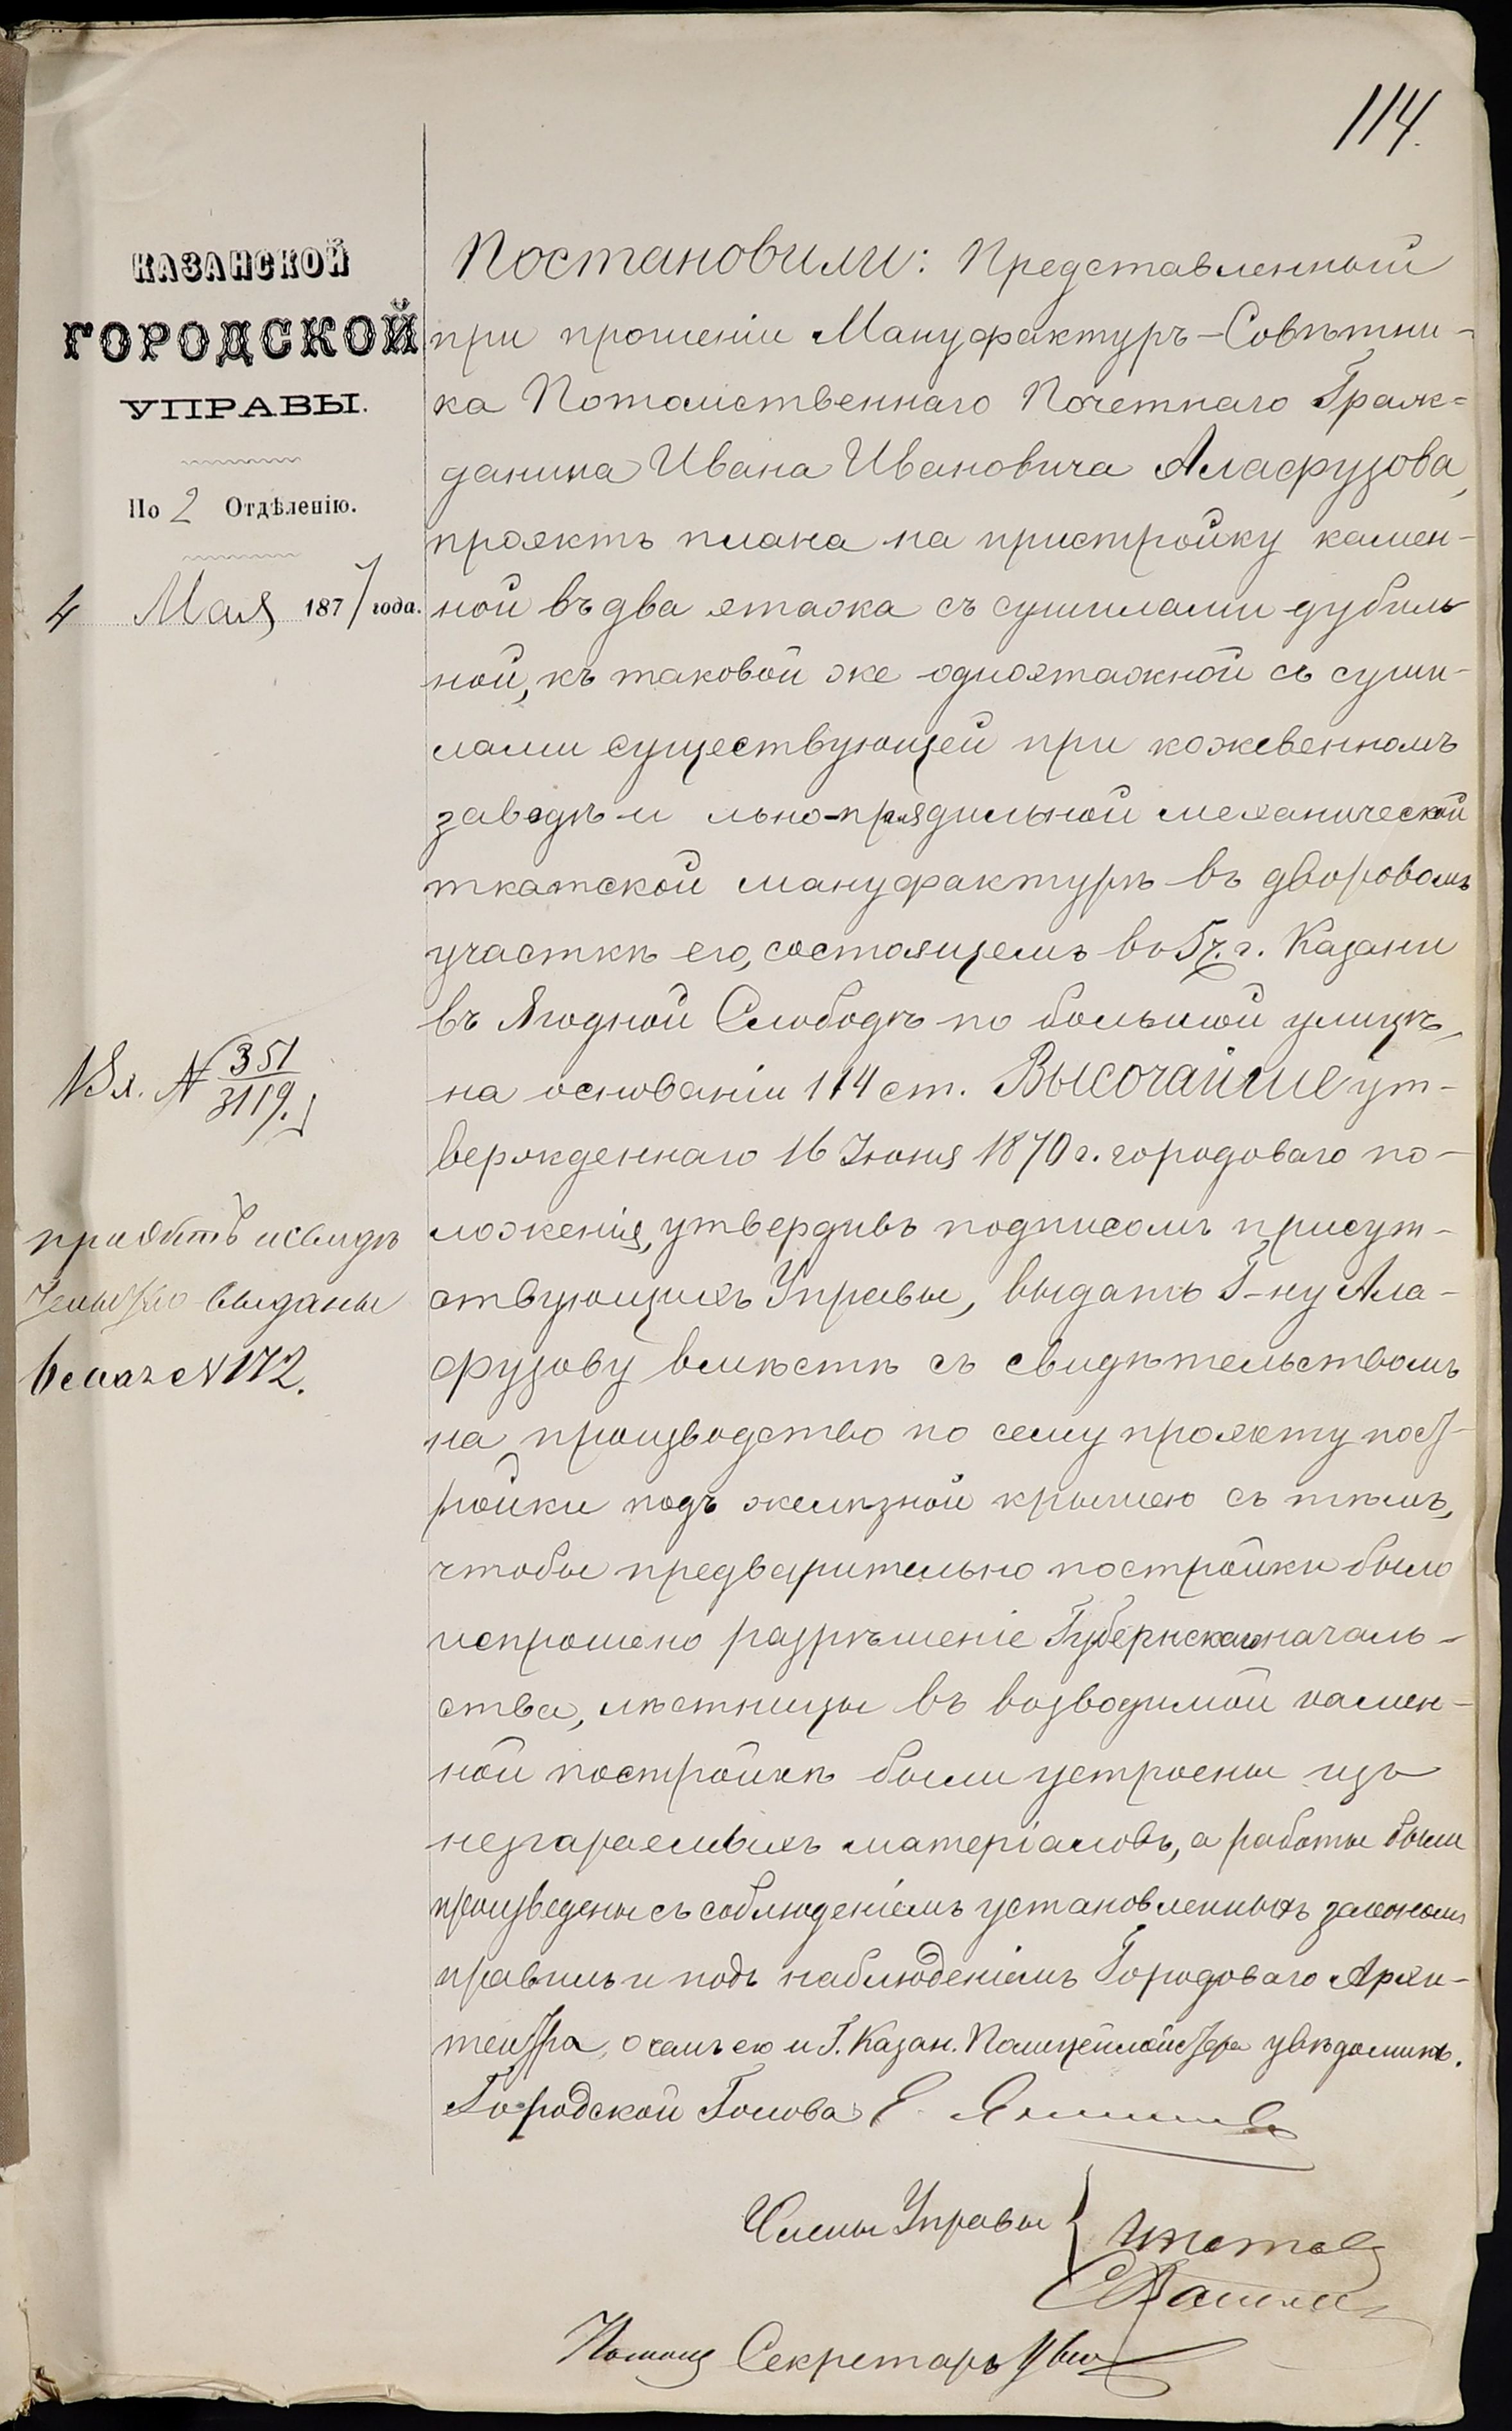 114.
КАЗАНСКОЙ
ГОРОДСКОЙ
УПРАВЫ.
По 2 Отдѣленію.
4 Мая 1877 года.
Вх. № 351/3119.
выданы
№ 172.
Постановили: Представленный
при прошеніи Мануфактуръ-Совѣтни-
ка Потомственнаго Почетнаго Граж=
данина Ивана Ивановича Алафузова,
проэктъ плана на пристройку камен-
ной въ два этажа съ сушилами дубиль
ной, къ таковой же одноэтажной съ суши-
лами существующей при кожевенномъ
заводѣ и льно-прядильной механической
ткатской мануфактурѣ въ дворовомъ
участкѣ его, состоящемъ въ 5 ч. г. Казани
въ Ягодной Слободѣ по большой улицѣ,
на основаніи 114 ст. Высочайше ут-
вержденнаго 16 Іюня 1870 г. городоваго по-
ложенія, утвердивъ подписомъ присут-
ствующихъ Управы, выдать Г-ну Ала-
фузову вмѣстѣ съ свидѣтельствомъ
на производство по сему проэкту пост-
ройки подъ желѣзной крышею съ тѣмъ,
чтобы предварительно постройки было
испрошено разрѣшеніе Губернскаго началь-
ства, лѣстницы въ возводимой камен-
ной постройкѣ были устроены изъ
незгараемыхъ матеріаловъ, а работы были
произведены съ соблюденіемъ установленныхъ закономъ
правилъ и подъ наблюденіемъ Городоваго Архи-
тектра, о чемъ его и Г. Казан. Полицеймейстера увѣдомить.
Городской Голова Е. Янишев
Члены Управы
Помощ Секретарь